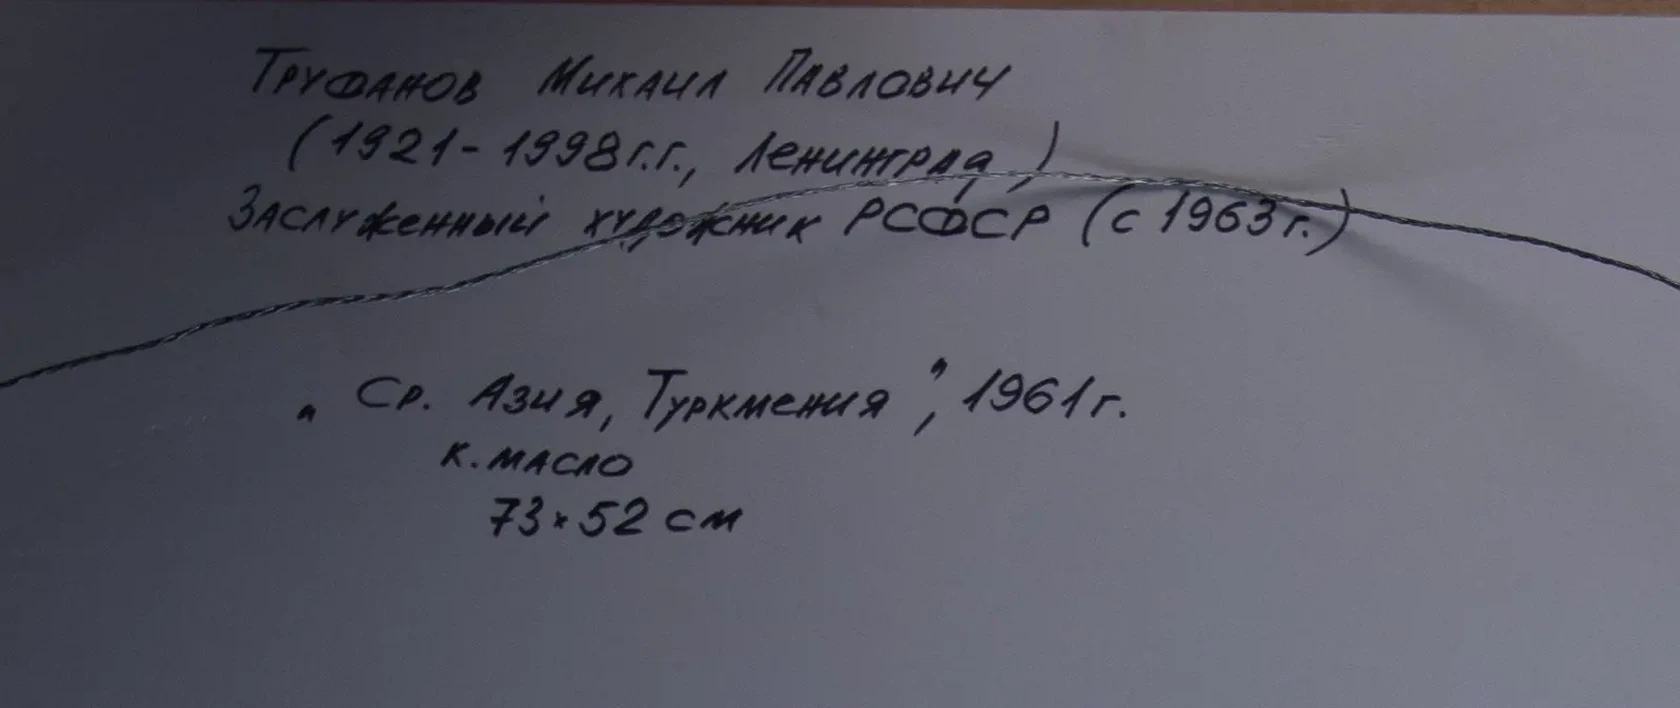 Труфанов Михаил Павлович
(1921-1998г.г., Ленинград,)
Заслуженный художник РСФСР (с 1963г.)
"Ср. Азия, Туркмения", 1961г.
к. масло
73×52 см